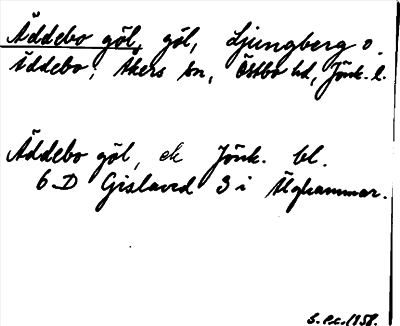 Äddebo göl, göl, Ljungberg o.
Äddebo, Åkers sn, Östbo hd, Jönk. l.
Äddebo göl, ek Jönk. bl.
6 D Gislaved 3 i Älghammar.
1958.